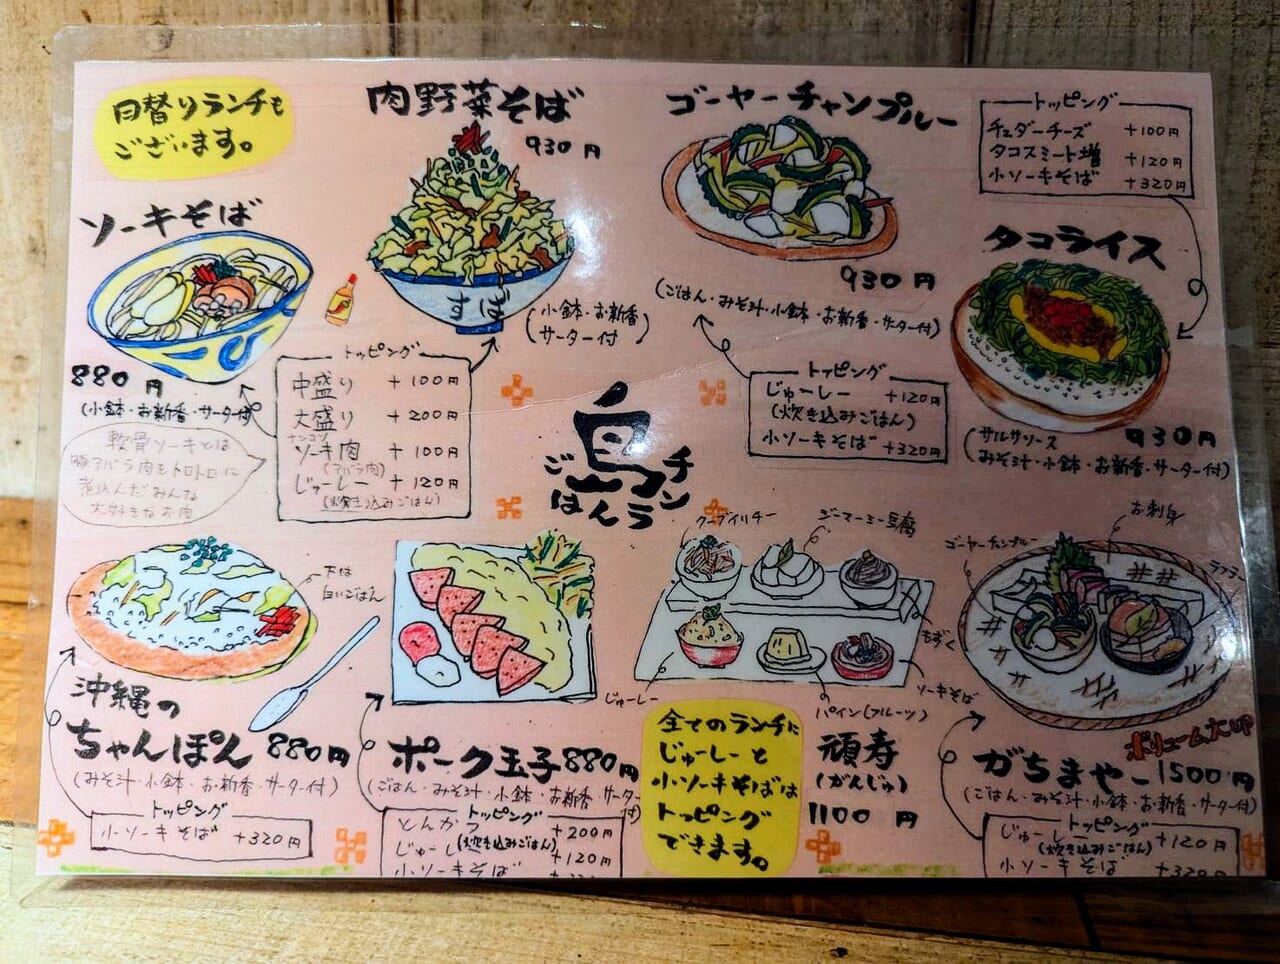 日替りランチも
ございます。
肉野菜そば
930円
すば
(小鉢・お新香・
サーター付)
ゴーヤーチャンプルー
930円
(ごはん・みそ汁・小鉢・お新香・サーター付)
トッピング
チェダーチーズ +100円
タコスミート増 +120円
小ソーキそば +320円
ソーキそば
880円
(小鉢・お新香・サーター付)
軟骨ソーキとは
豚アバラ肉をトロトロに
煮込んだみんな
大好きなお肉
トッピング
中盛り +100円
大盛り +200円
ナンコツ
ソーキ肉 +100円
(アバラ肉)
じゅーしー +120円
(炊き込みごはん)
トッピング
じゅーしー +120円
(炊き込みごはん)
小ソーキそば +320円
タコライス
930円
(サルサソース
みそ汁・小鉢・お新香・サーター付)
島
ごはん
チンラ
下は
白いごはん
沖縄の
ちゃんぽん 880円
(みそ汁・小鉢・お新香・サーター付)
トッピング
小ソーキそば +320円
ポーク玉子 880円
(ごはん・みそ汁・小鉢・お新香・サーター付)
トッピング
とんかつ +200円
じゅーしー(炊き込みごはん) +120円
小ソーキそば
クーブイリチー
ジーマーミー豆腐
もずく
じゅーしー
パイン(フルーツ)
ソーキそば
全てのランチに
じゅーしーと
小ソーキそばは
トッピング
できます。
頑寿
(がんじゅ)
1100円
ゴーヤーチャンプルー
お刺身
ラフテー
ボリューム大
がちまやー 1500円
(ごはん・みそ汁・小鉢・お新香・サーター付)
トッピング
じゅーしー +120円
(炊き込みごはん)
小ソーキそば +320円